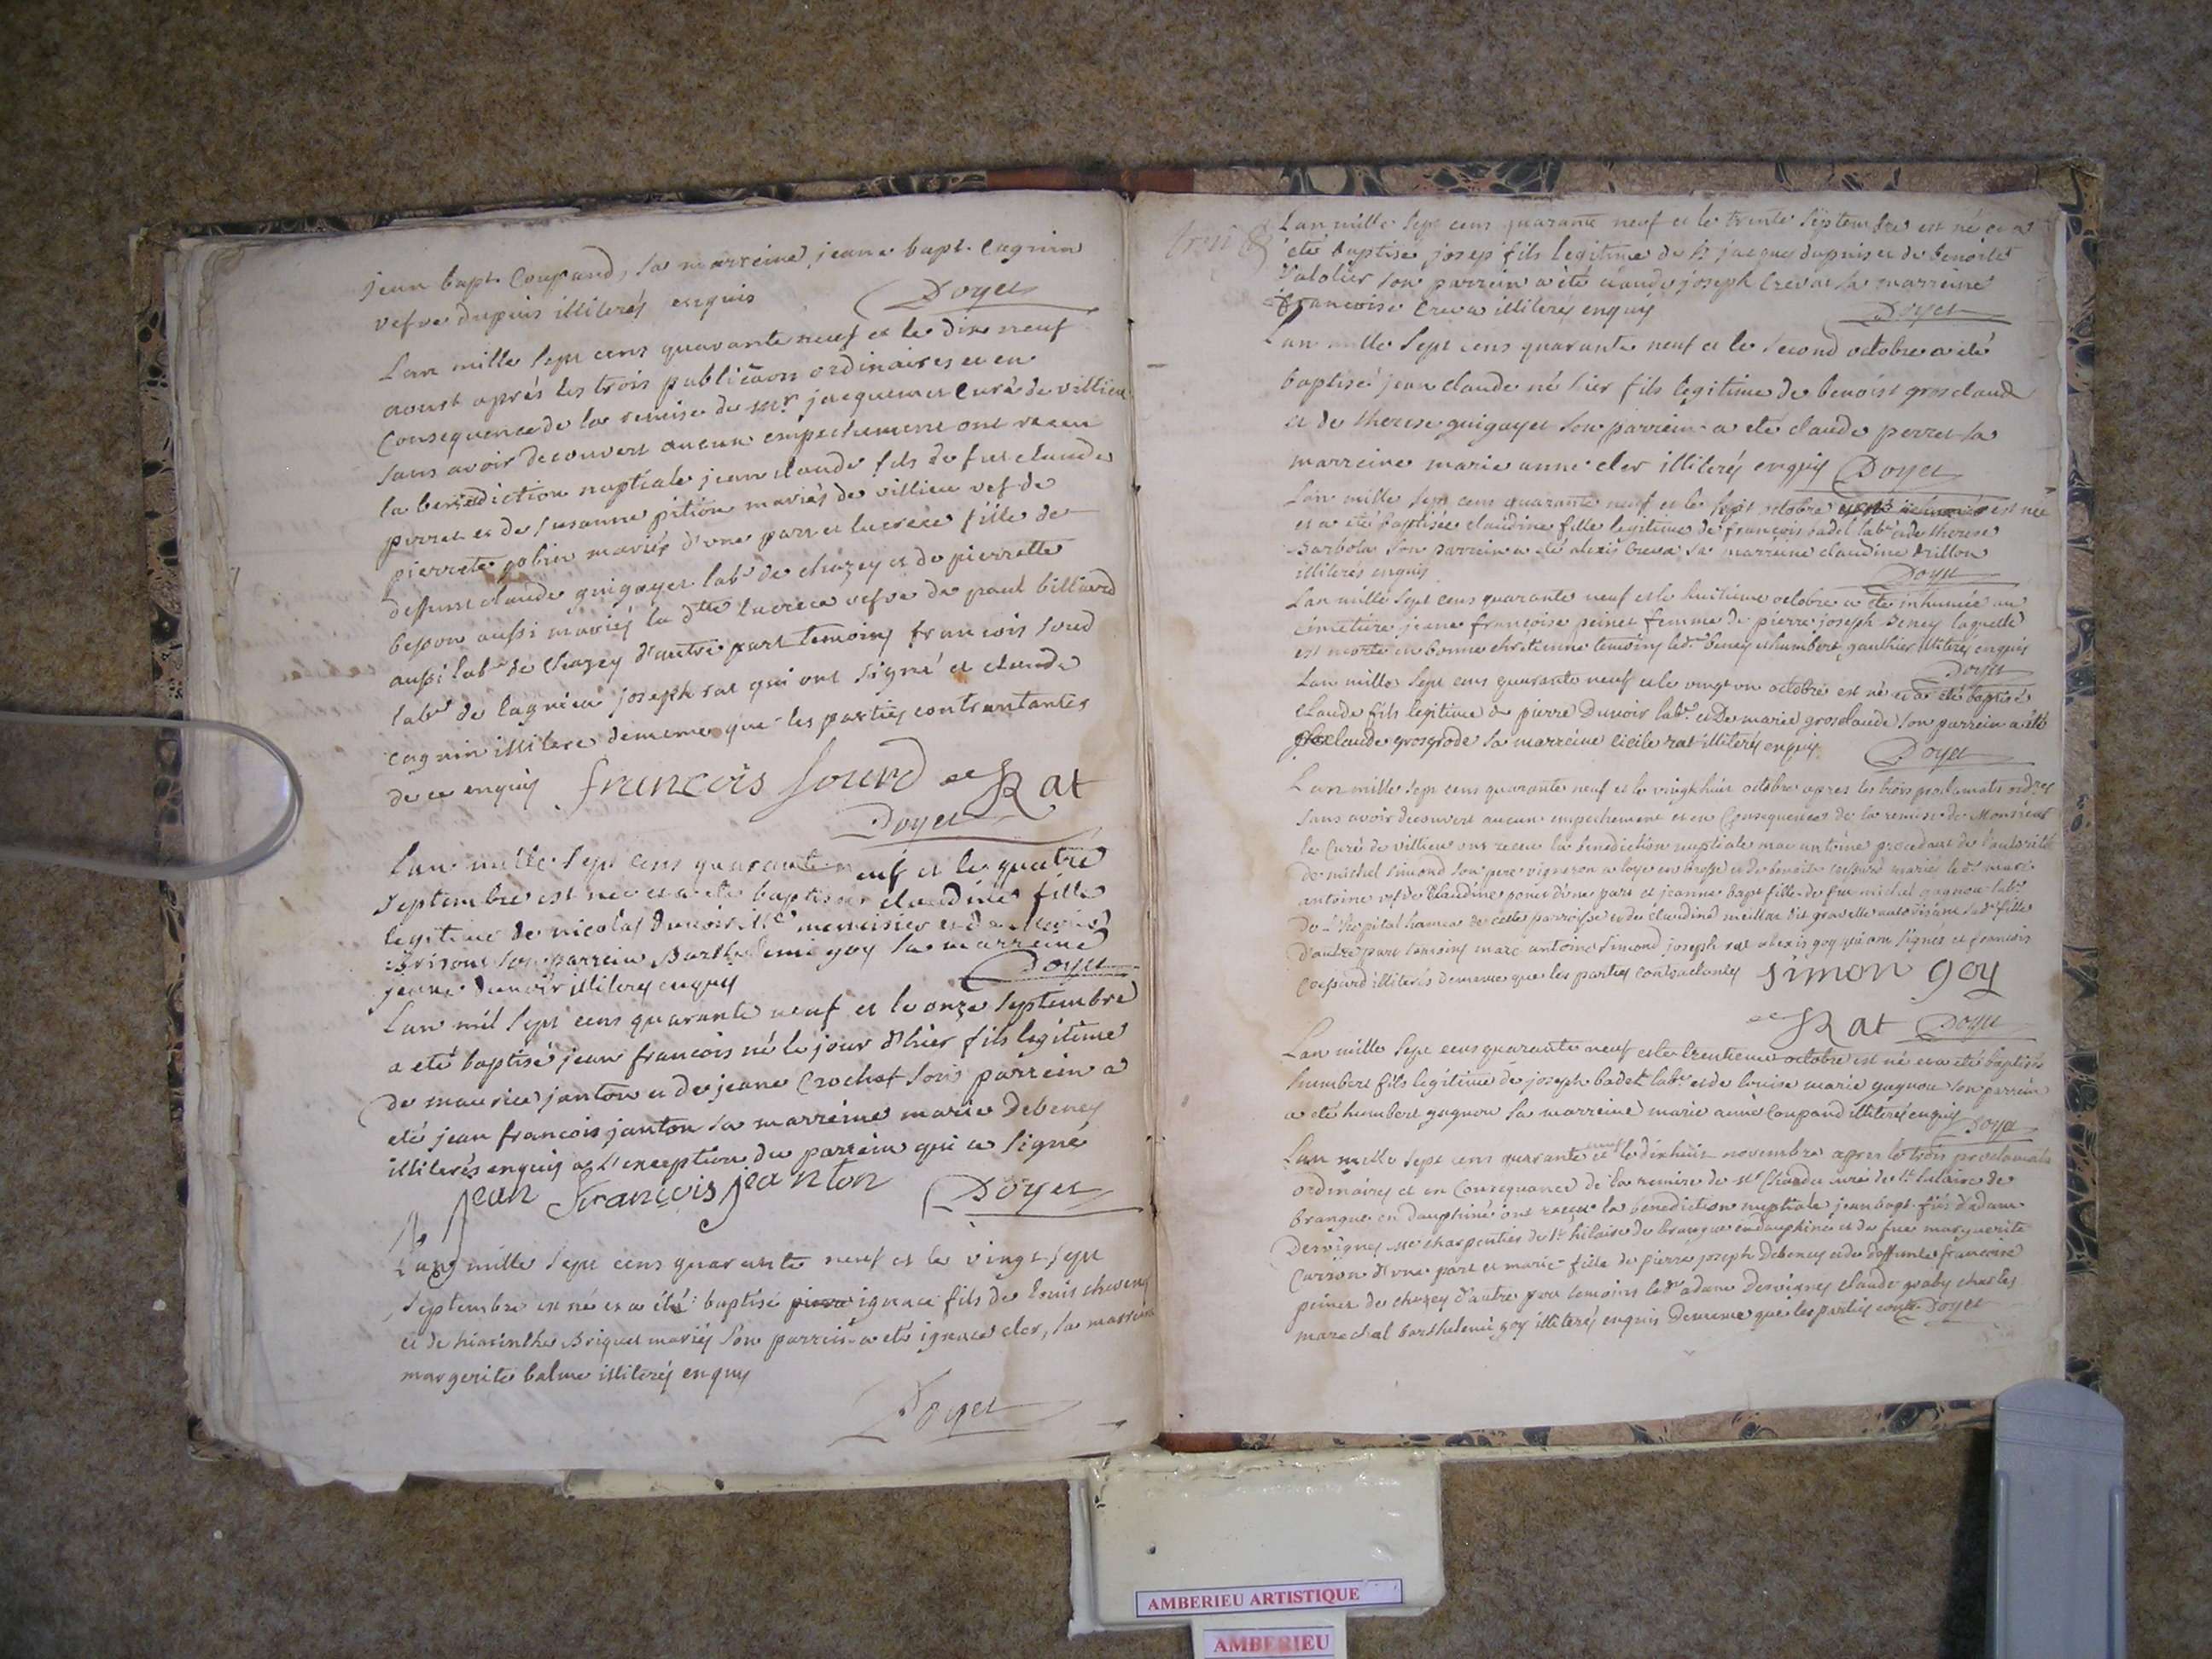 jean bapt. Coupand, sa marreine jeane bapt. Cagnin
vefve dupuis illiterés enquis Doyet
Lan mille sept cens quarante neuf et le dix neuf
aoust aprés les trois publicaons ordinaires et en
Consequence de la remise de mr. jacquemet Curé de villieu
sans avoir decouvert aucun empechement ont receu
la benediction nuptiale jean claude fils de fut claude
perret et de susanne pition mariés de villieu vef de
pierrete gobier mariés d'une part et lucrece fille de
deffunt claude guigayet labr. de chazey et de pierrette
besson aussi mariés la dtte lucrece vefve de paul billiard
aussi labr. de Chazey d'autre part temoins francois sourd
labr. de lagnieu joseph rat qui ont signé et claude
cagnin illitere dememe que les parties contractantes
de ce enquis francois sourd Rat
Doyet
Lan mille sept cens quarante neuf et le quatre
septembre est née et a été baptisée claudine fille
legitime de nicolas dunoir Me. menuisier et de Marie
Brison son parrein Barthelemi goy sa marreine
jeane dunoir illiterés enquis Doyet
Lan mil sept cens quarante neuf et le onze septembre
a eté baptisé jean francois né le jour d'hier fils legitime
de maurice janton et de jeane Crochet son parrein a
eté jean francois janton sa marreine marie Debeney
illiterés enquis a l'exception du parrein qui a signé
jean François jeanton Doyet
Lan mille sept cens quarante neuf et le vingt sept
septembre est né et a été baptisé ignace fils de louis
et de hiacinthe Briquet mariés son parrein a eté ignace cler, sa marreine
margerite balme illiterés enquis
Doyet
Lan mille sept cens quarante neuf et le trente septembre est né et a
été baptisé josep fils legitime de jacque dupuis et de benoite
son parrein a été claude joseph Crevat sa marreine
francoise Creva illiterés enquis Doyet
Lan mille sept cens quarante neuf et le second octobre a eté
baptisé jean claude né hier fils legitime de benoist grosclaude
et de therese guigayet son parrein a eté claude perret sa
marreine marie anne cler illiterés enquis Doyet
Lan mille sept cens quarante neuf et le sept octobre est née
et a été baptisée claudine fille legitime de françois badel labr. et de therese
Barbolat son parrein a été alexis Creva sa marreine claudine drillon
illiterés enquis Doyet
Lan mille sept cens quarante neuf et le huitieme octobre a été inhumée au
cimetiere jeane francoise peinet femme de pierre joseph Beney laquelle
est morte en bonne chrétienne temoins led. beney et humbert gauthier illiterés enquis
Doyet
Lan mille sept cens quarante neuf et le vingt un octobre est né et a été baptisé
claude fils legitime de pierre Dunoir labr. et De marie grosclaude son parrein a été
claude grosgrode sa marreine cicile rat illiterés enquis Doyet
Lan mille sept cens quarante neuf et le vingt huit octobre apres les trois proclamats ordres
sans avoir decouvert aucun empechement et en Consequence de la remise de Monsieur
le Curé de villieu ont receu la benediction nuptiale marc antoine procedant de l'autorité
de michel simond son pere vigneron a loye en bresse et de benoite mariés le dt. marc
antoine vef de Claudine d'une part et jeanne bapt fille de feu michel gagnon labr.
De L'hopital hameau de cette parroisse et de claudine meillat dit gravelle autorisant sa de. fille
d'autre part temoins marc antoine simond joseph rat alexis goy qui ont signés et francois
Coupard illiterés dememe que les parties contractantes simon goy
Rat Doyet
Lan mille sept cens quarante neuf et le trentieme octobre est né et a été baptisé
humbert fils legitime de joseph badel labr. et de louise marie gagnon son parrein
a été humbert gagnon sa marreine marie anne Coupand illiterés enquis Doyet
Lan mille sept cens quarante neuf et le dixhuit novembre apres les trois proclamats
ordinaires et en Consequance de la remise de Mr curé de St. hilaire de
brangue en dauphiné ont receu la benediction nuptiale jean bapt. fils d'adam
Desvignes me charpentier de St. hilaire de brangue en dauphiné et de feue marguerite
Curson d'une part et marie fille de pierre joseph Debeney et de deffunte francoise
peinet de chazey d'autre part temoins le dt. adam Desvignes claude graby charles
marechal barthelemi goy illiterés enquis Dememe que les parties contr. Doyet
AMBERIEU ARTISTIQUE
AMBERIEU